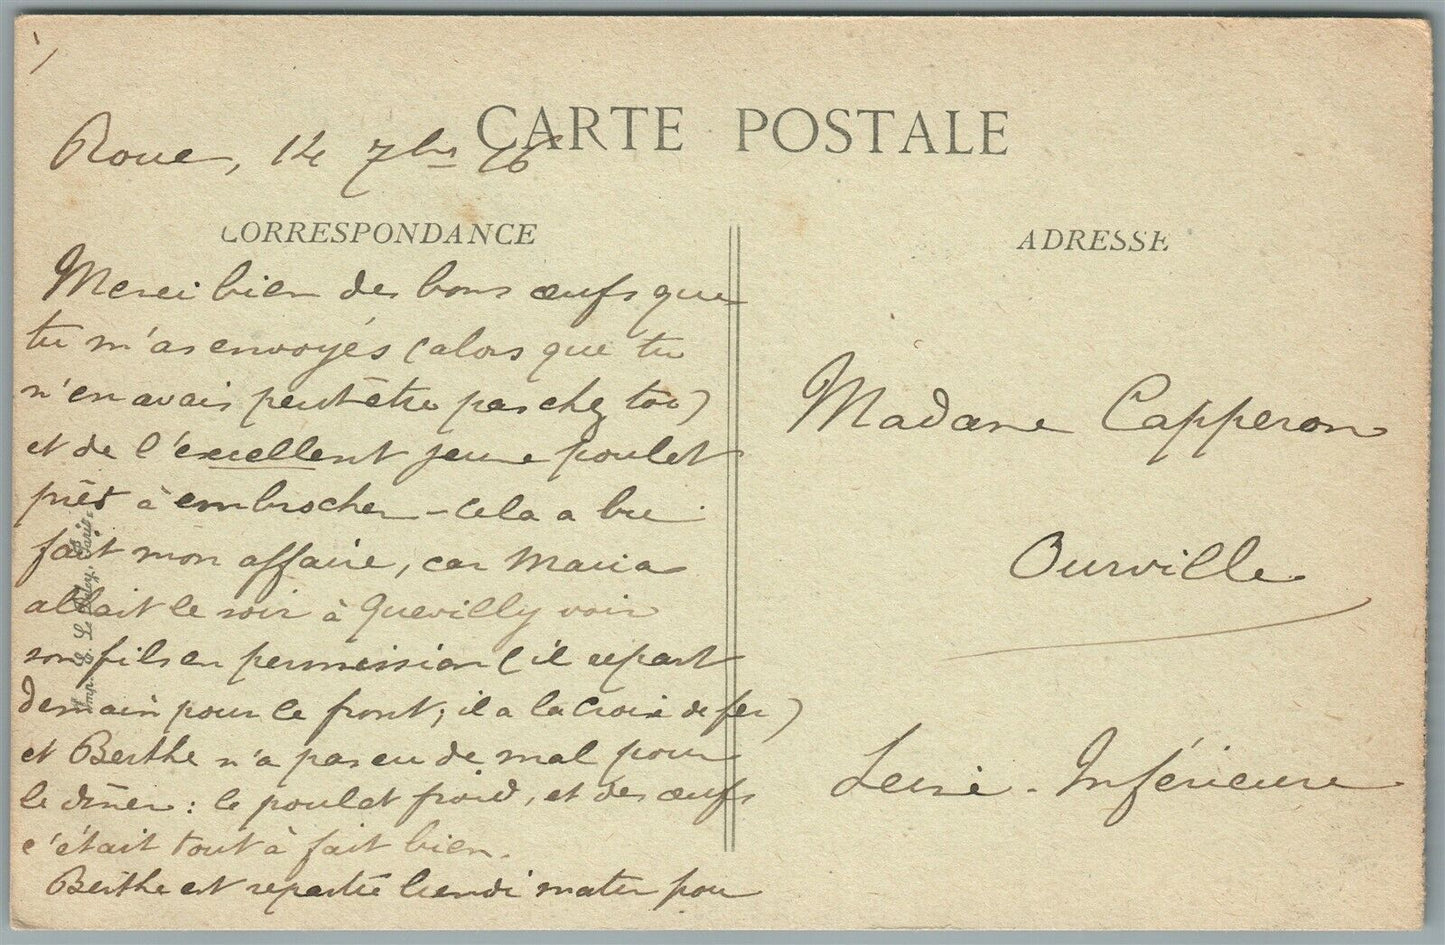 CARTE POSTALE
Rouen, 14 7bre 16
CORRESPONDANCE
Merci bien des bons œufs que
tu m'as envoyés (alors que tu
n'en avais peut-être pas chez toi)
et de l'excellent jeune poulet
prêt à embrocher - cela a bien
fait mon affaire, car Maria
allait le soir à Quevilly voir
son fils en permission (il repart
demain pour le front; il a la croix de fer)
et Berthe n'a pas eu de mal pour
le dîner : le poulet froid, et des œufs
c'était tout à fait bien.
Berthe est repartie lundi matin pour
Imp. E. Le Deley, Paris.
ADRESSE
Madame Capperon
Ourville
Seine-Inférieure